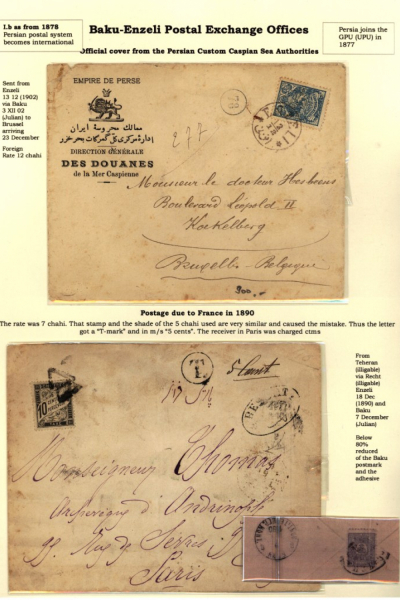 I.b as from 1878
Persian postal system
becomes international
Baku-Enzeli Postal Exchange Offices
Persia joins the
GPU (UPU) in
1877
Official cover from the Persian Custom Caspian Sea Authorities
Sent from
Enzeli
13 12 (1902)
via Baku
3 XII 02
(Julian) to
Brussel
arriving
23 December
Foreign
Rate 12 chahi
EMPIRE DE PERSE
ممالک محروسهٔ ایران
DIRECTION GÉNÉRALE
DES DOUANES
de la Mer Caspienne
277
Monsieur le docteur
Boulevard Léopold II
Koekelberg
Bruxelles - Belgique
900.-
Postage due to France in 1890
The rate was 7 chahi. That stamp and the shade of the 5 chahi used are very similar and caused the mistake. Thus the letter
got a "T-mark" and in m/s "5 cents". The receiver in Paris was charged ctms
T
5 Cent
10
Monseigneur Thomas
Archevêque d'Andrinople
95. Rue de Sèvres
Paris
From
Teheran
(illigable)
via Recht
(illigable)
Enzeli
18 Dec
(1890) and
Baku
7 December
(Julian)
Below
80%
reduced
of the Baku
postmark
and the
adhesive